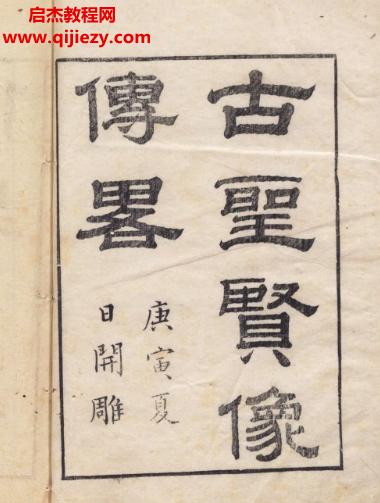 启杰教程网
www.qijiezy.com
古聖賢像
傳畧
庚寅夏
日開雕